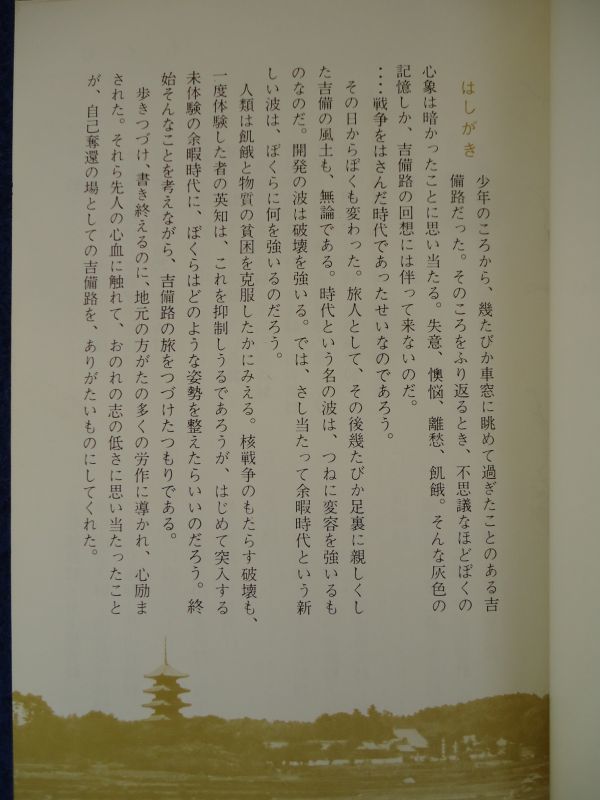 はしがき
少年のころから、幾たびか車窓に眺めて過ぎたことのある吉
備路だった。そのころをふり返るとき、不思議なほどぼくの
心象は暗かったことに思い当たる。失意、懊悩、離愁、飢餓。そんな灰色の
記憶しか、吉備路の回想には伴って来ないのだ。
…戦争をはさんだ時代であったせいなのであろう。
その日からぼくも変わった。旅人として、その後幾たびか足裏に親しくし
た吉備の風土も、無論である。時代という名の波は、つねに変容を強いるも
のなのだ。開発の波は破壊を強いる。では、さし当たって余暇時代という新
しい波は、ぼくらに何を強いるのだろう。
人類は飢餓と物質の貧困を克服したかにみえる。核戦争のもたらす破壊も、
一度体験した者の英知は、これを抑制しうるであろうが、はじめて突入する
未体験の余暇時代に、ぼくらはどのような姿勢を整えたらいいのだろう。終
始そんなことを考えながら、吉備路の旅をつづけたつもりである。
歩きつづけ、書き終えるのに、地元の方がたの多くの労作に導かれ、心励ま
された。それら先人の心血に触れて、おのれの志の低さに思い当たったこと
が、自己奪還の場としての吉備路を、ありがたいものにしてくれた。